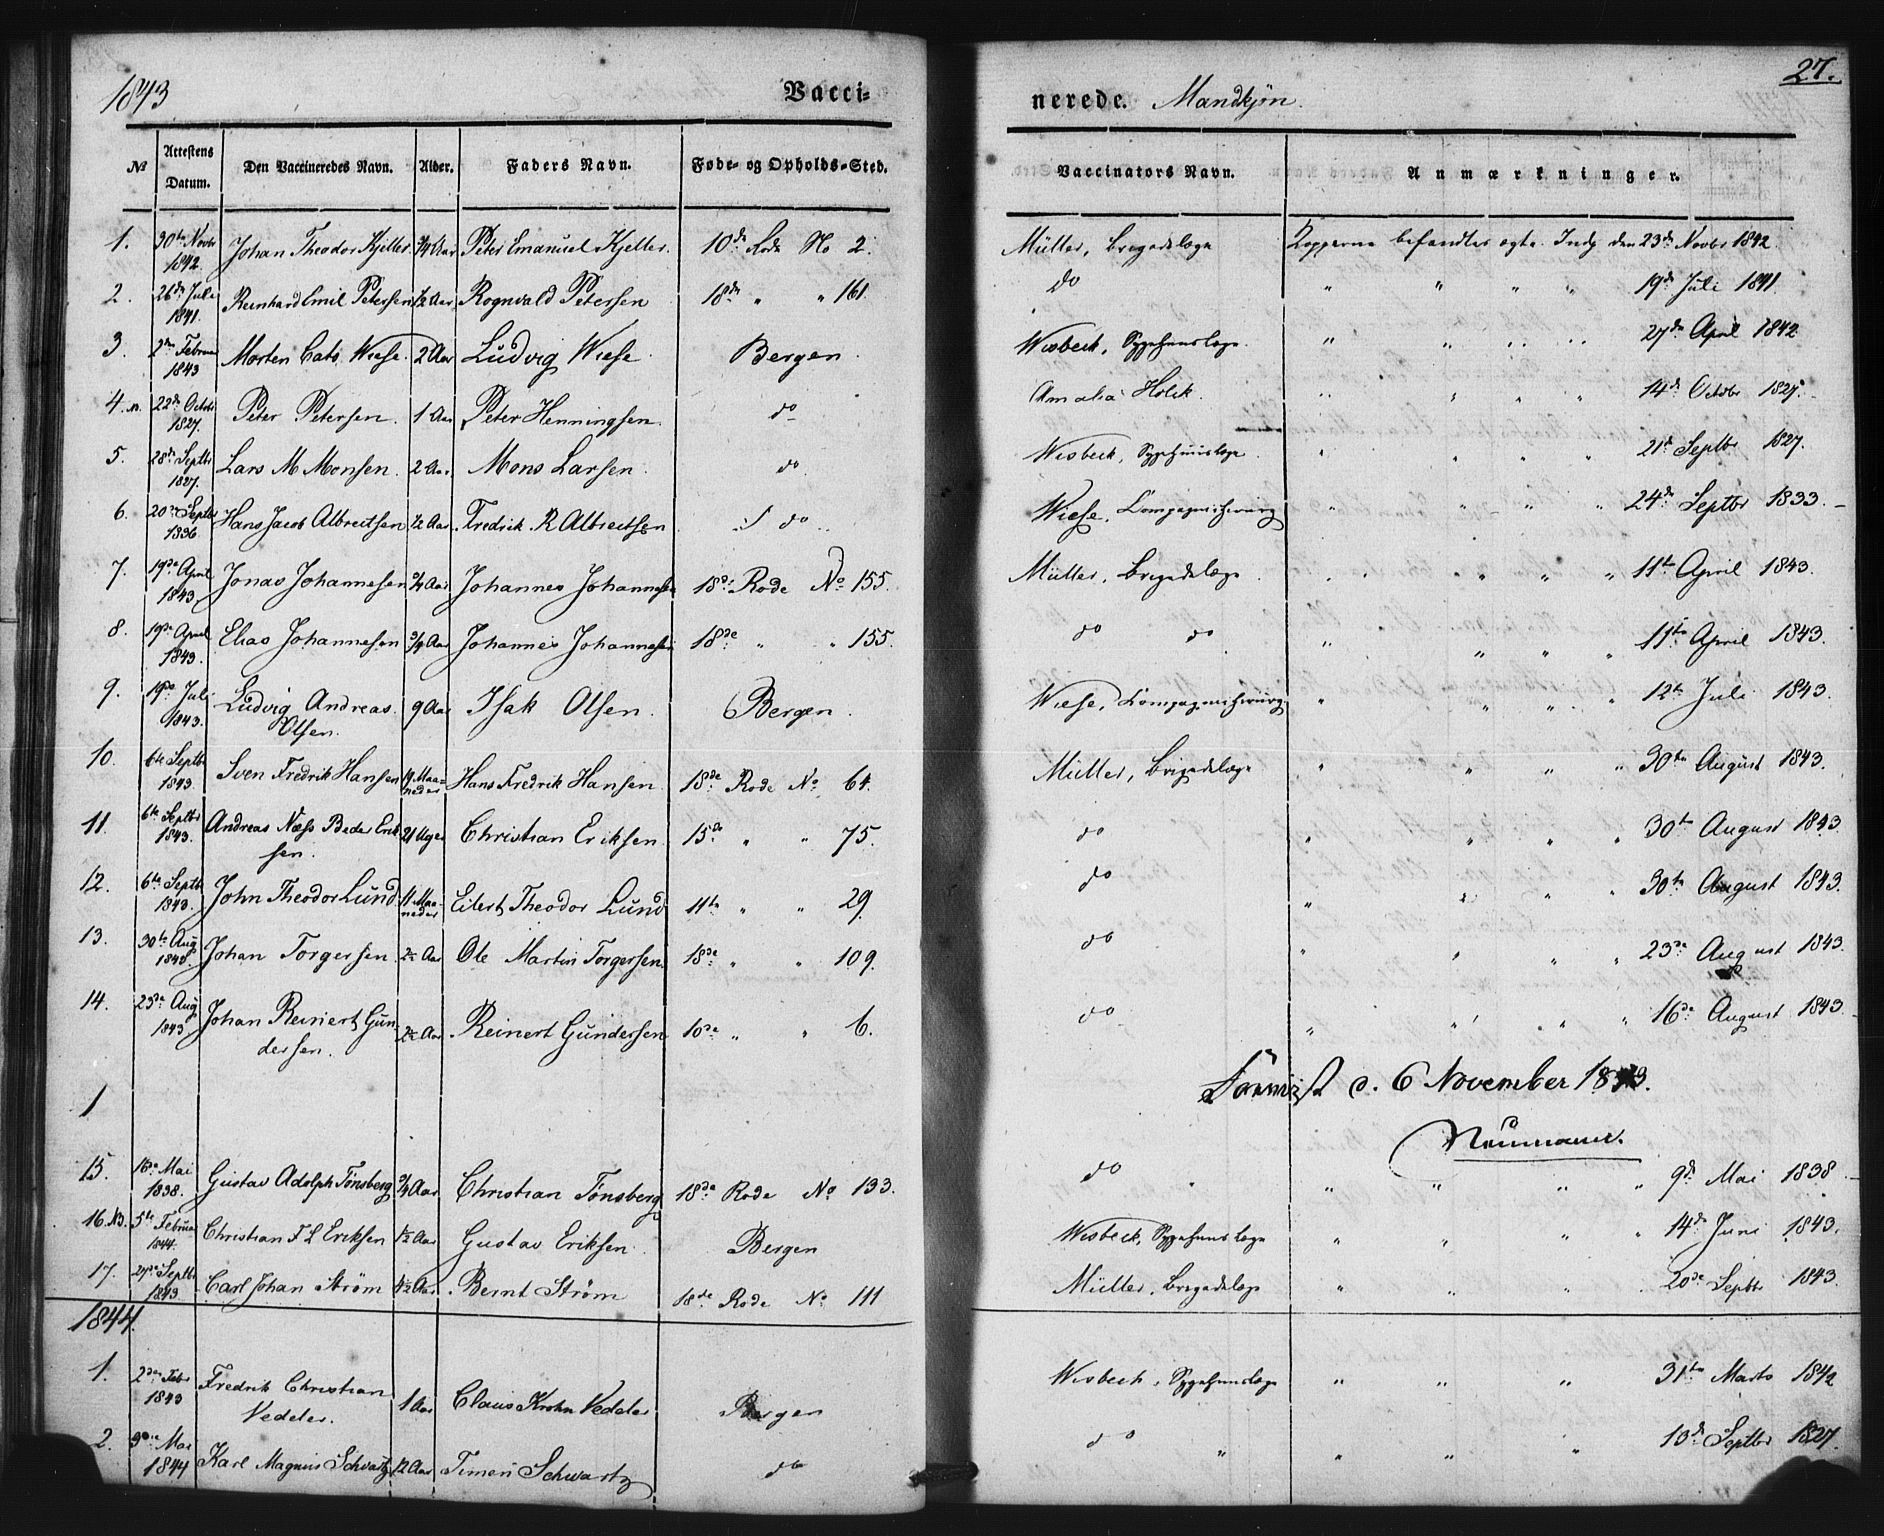 1843 Vacci= nerede. Mandkjøn. 27.
№ Attestens Datum. Den Vaccineredes Navn. Alder. Faders Navn. Føde- og Opholds-Sted. Vaccinators Navn. Anmærkninger.
1. 30te Novbr 1842. Johan Theodor Kjeller 3/4 Aar Peter Emanuel Kjeller. 10de Rode No 2. Müller, Brigadelæge Kopperne befandtes ægte. Indg den 23de Novbr 1842.
2. 26de Juli 1841. Reinhard Emil Petersen 1/2 Aar Rognvald Petersen 18de " " 161. do " " " " 19de Juli 1841.
3. 2den Februar 1843 Morten Cats Wiese. 2 Aar Ludvig Wiese. Bergen. Wisbeck, Sygehuuslæge. " " " " 27de April 1842
4. 22de Octobr 1827. Peter Petersen. 1 Aar Peter Henningsen. do Amalia Holck. " " " " 14de Octobr 1827.
5. 28de Septbr 1827. Lars M Monsen. 2 Aar. Mons Larsen. do. Wisbeck, Sygehuuslæge. " " " " 21d Septbr 1827.
6. 20de Septbr 1836 Hans Jacob Albreitsen 1/2 Aar Fredrik R Albreitsen do Wiese, Compagnichirurg " " " " 24de Septbr 1833.
7. 19de April 1843 Jonas Johannesen 3/4 Aar Johannes Johannesen 18de Rode No 155. Müller, Brigadelæge " " " " 11te April 1843.
8. 19de April 1843. Elias Johannesen 3/4 Aar Johannes Johannesen 18de " " 155. do do " " " " 11te April 1843.
9. 19de Juli 1843. Ludvig Andreas Olsen. 9 Aar Isak Olsen. Bergen. Wiese, Compagnichirurg " " " " 12te Juli 1843.
10. 6te Septbr 1843. Sven Fredrik Hansen Maaneder Hans Fredrik Hansen. 18de Rode No 64. Müller, Brigadelæge " " " " 30te August 1843.
11. 6te Septbr 1843. Andreas Næss Beder Eriksen. 21 Uger Christian Eriksen. 15de " " 75. do " " " " 30te August 1843.
12. 6te Septbr 1843. John Theodor Lund 11 Maaneder Eilert Theodor Lund 11te " " 29. do " " " " 30te August 1843.
13. 30te Aug 1843. Johan Torgersen. Aar Ole Martin Torgersen. 18de " " 109. do " " " " 23de August 1843.
14. 23de Aug 1843 Johan Reinert Gundersen. Aar Reinert Gundersen 10de " " 6. do " " " " 16de August 1843.
1 d. 6 November 1843.
Neumann.
15. 16de Mai 1838. Gustav Adolph Tønsberg 3/4 Aar Christian Tønsberg 18de Rode No 133. do " " " " " 9de Mai 1838.
16. NB. 5te Februar 1844. Christian F L Eriksen 1/2 Aar Gustav Eriksen. Bergen Wisbeck, Sygehuuslæge " " " " 14de Juni 1843.
17. 27de Septbr 1843. Carl Johan Strøm Aar Bernt Strøm 18de Rode No 111 Müller, Brigadelæge " " " " 20de Septbr 1843.
1844.
1. 2den Febr 1843 Fredrik Christian Vedeler. 1 Aar Claus Krohn Vedeler Bergen Wisbech, Sygehuuslæge " " " 31te Marts 1842
2. Mai 1844 Karl Magnus Schwartz 12 Aar Timen Schwartz do do " " " " 13de Septbr 1827.